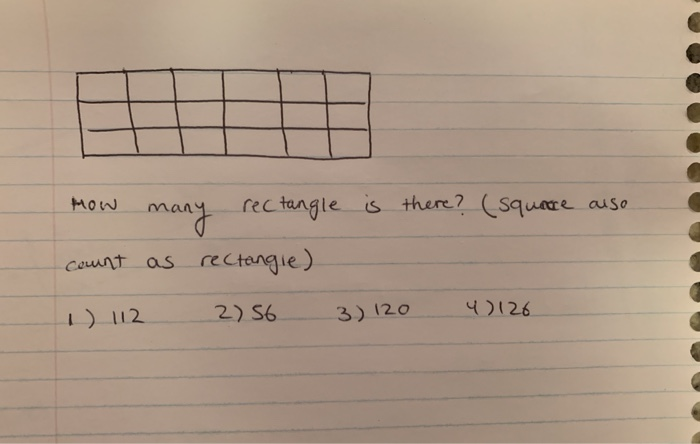 How many rectangle is there? (Square also
count as rectangle)
1) 112 2) 56 3) 120 4) 126